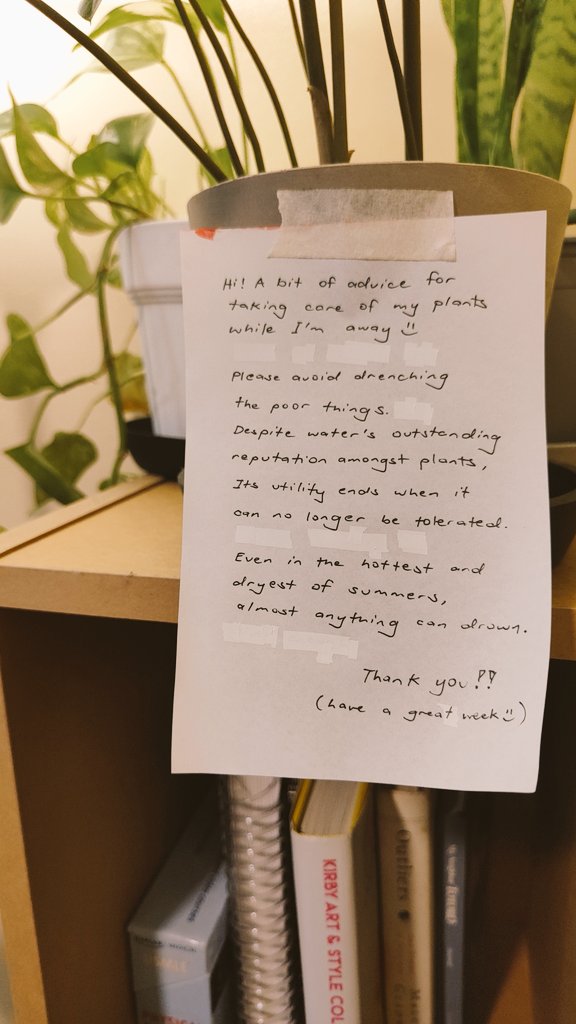 Hi! A bit of advice for
taking care of my plants
while I'm away :)
Please avoid drenching
the poor things.
Despite water's outstanding
reputation amongst plants,
Its utility ends when it
can no longer be tolerated.
Even in the hottest and
dryest of summers,
almost anything can drown.
Thank you!!
(have a great week :))
KIRBY ART & STYLE COL
Outliers